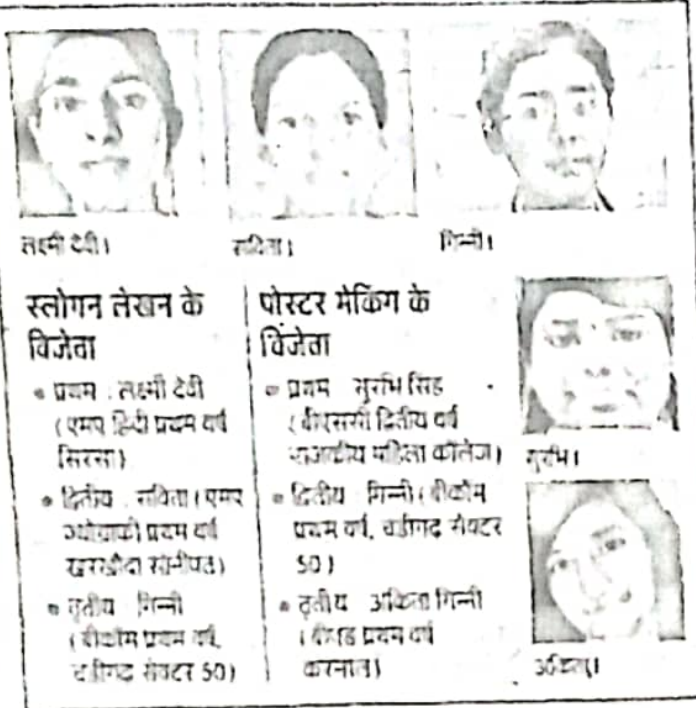 लक्ष्मी देवी।
सविता।
गिन्नी।
स्लोगन लेखन के
विजेता
• प्रथम : लक्ष्मी देवी
(एमए हिंदी प्रथम वर्ष
सिरसा)
• द्वितीय : सविता (एमए
ज्योग्राफी प्रथम वर्ष
खरखौदा सोनीपत)
• तृतीय गिन्नी
(बीकॉम प्रथम वर्ष,
चंडीगढ़ सेक्टर 50)
पोस्टर मेकिंग के
विजेता
• प्रथम सुरभि सिंह
(बीएससी द्वितीय वर्ष
राजकीय महिला कॉलेज)
• द्वितीय गिन्नी (बीकॉम
प्रथम वर्ष, चंडीगढ़ सेक्टर
50)
• तृतीय अंकिता गिन्नी
(बीएड प्रथम वर्ष
करनाल)
सुरभि।
अंकिता।